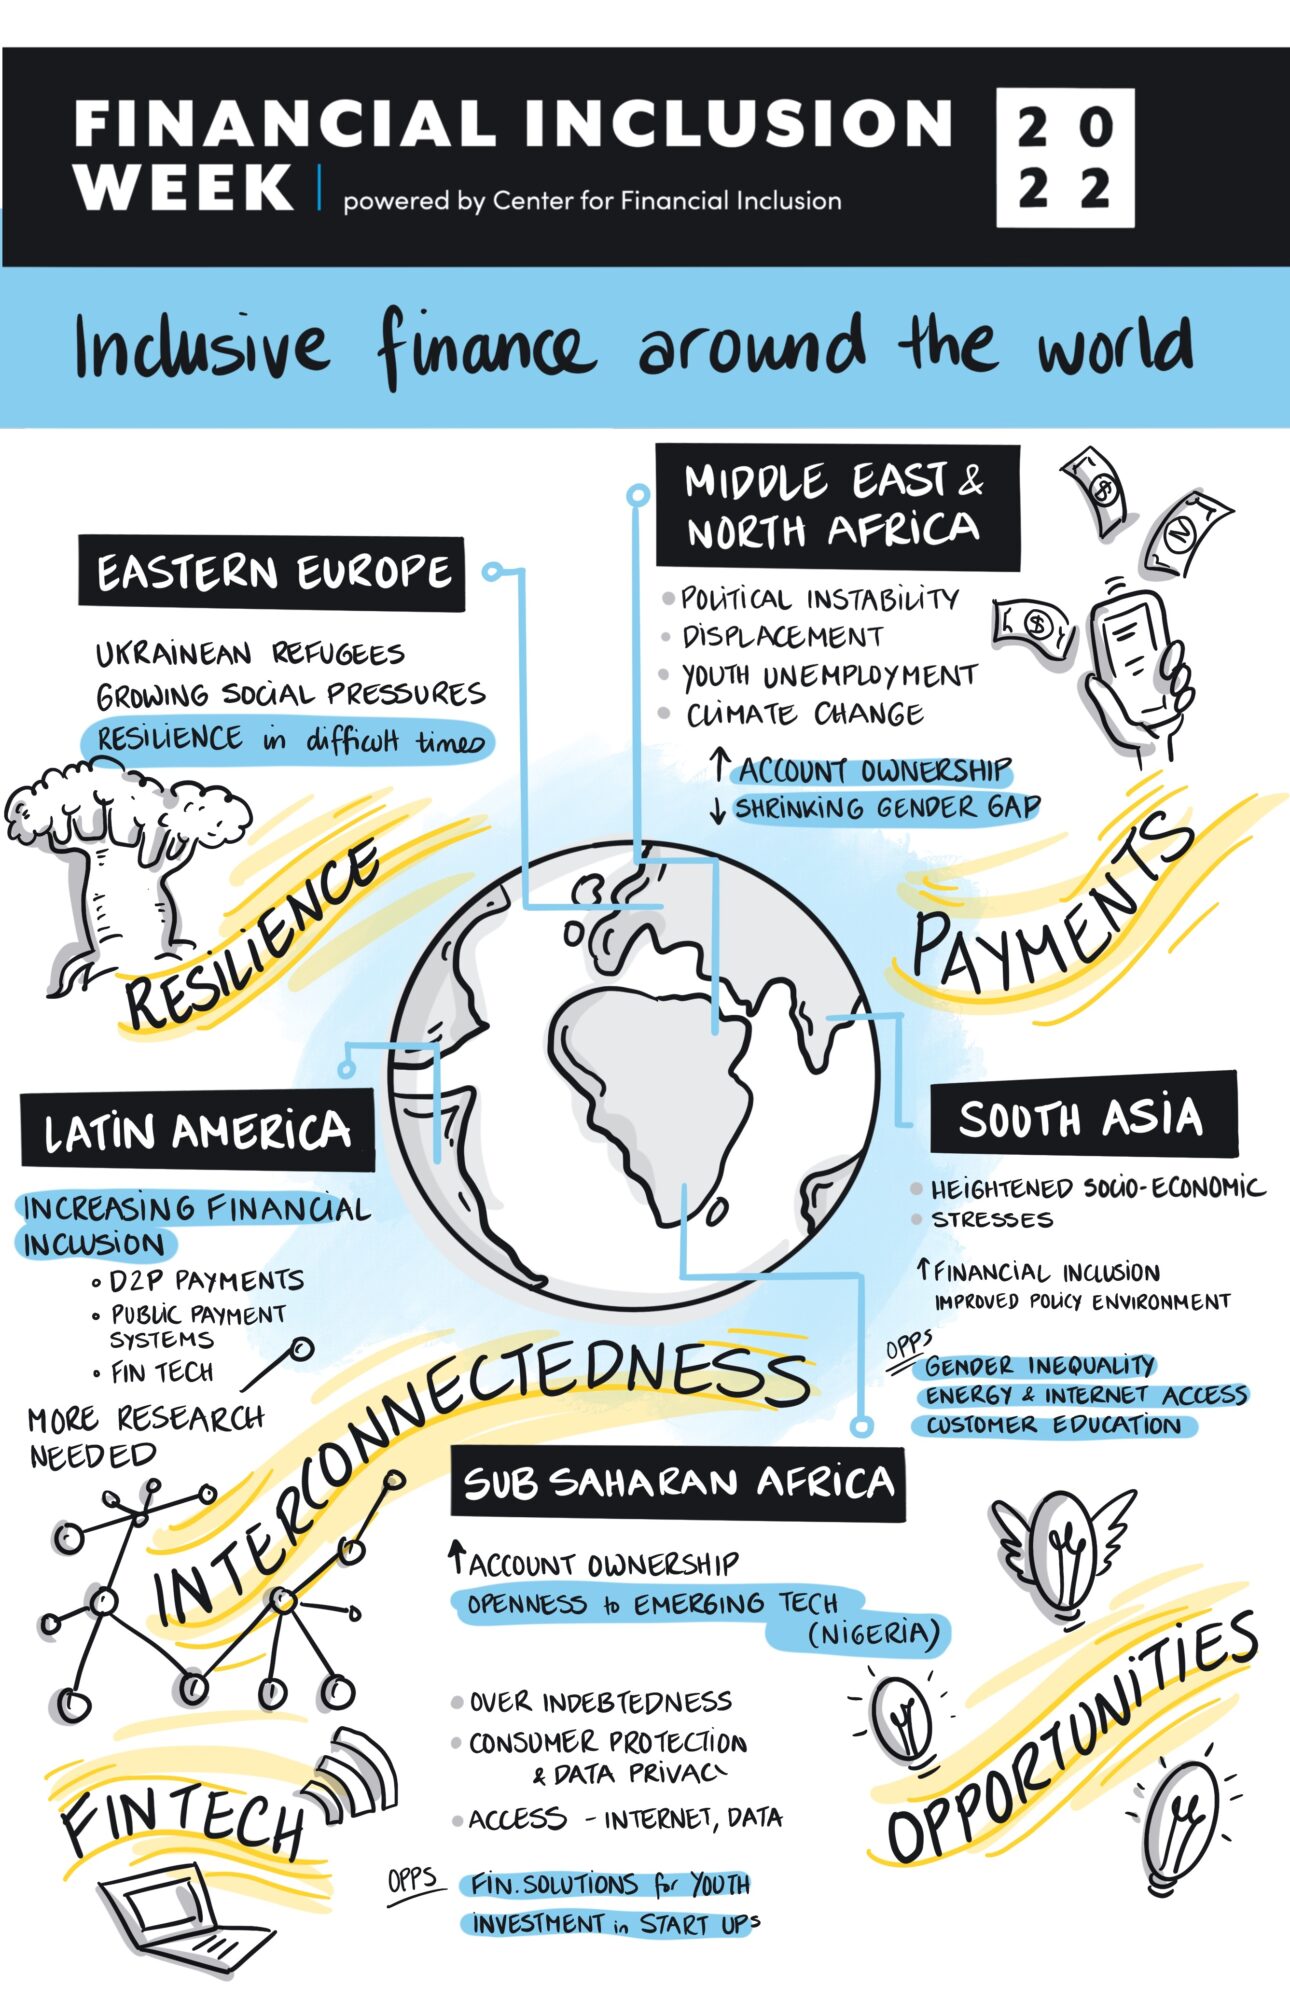 FINANCIAL INCLUSION
WEEK | powered by Center for Financial Inclusion
20
22
Inclusive finance around the world
EASTERN EUROPE
UKRAINEAN REFUGEES
GROWING SOCIAL PRESSURES
RESILIENCE in difficult times
RESILIENCE
MIDDLE EAST &
NORTH AFRICA
• POLITICAL INSTABILITY
• DISPLACEMENT
• YOUTH UNEMPLOYMENT
• CLIMATE CHANGE
↑ ACCOUNT OWNERSHIP
↓ SHRINKING GENDER GAP
$
N
$
PAYMENTS
LATIN AMERICA
INCREASING FINANCIAL
INCLUSION
• D2P PAYMENTS
• PUBLIC PAYMENT
SYSTEMS
• FIN TECH
MORE RESEARCH
NEEDED
SOUTH ASIA
• HEIGHTENED SOCIO-ECONOMIC
• STRESSES
↑ FINANCIAL INCLUSION
IMPROVED POLICY ENVIRONMENT
OPPS
GENDER INEQUALITY
ENERGY & INTERNET ACCESS
CUSTOMER EDUCATION
INTERCONNECTEDNESS
SUB SAHARAN AFRICA
↑ ACCOUNT OWNERSHIP
OPENNESS to EMERGING TECH
(NIGERIA)
• OVER INDEBTEDNESS
• CONSUMER PROTECTION
& DATA PRIVAC
• ACCESS - INTERNET, DATA
OPPS
FIN. SOLUTIONS for YOUTH
INVESTMENT in START UPs
FINTECH
OPPORTUNITIES